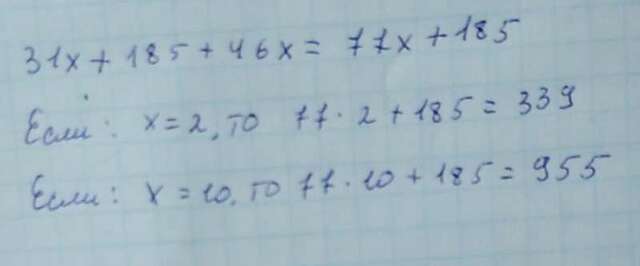 31x + 185 + 46x = 77x + 185
Если: x = 2, то 77 · 2 + 185 = 339
Если: x = 10, то 77 · 10 + 185 = 955